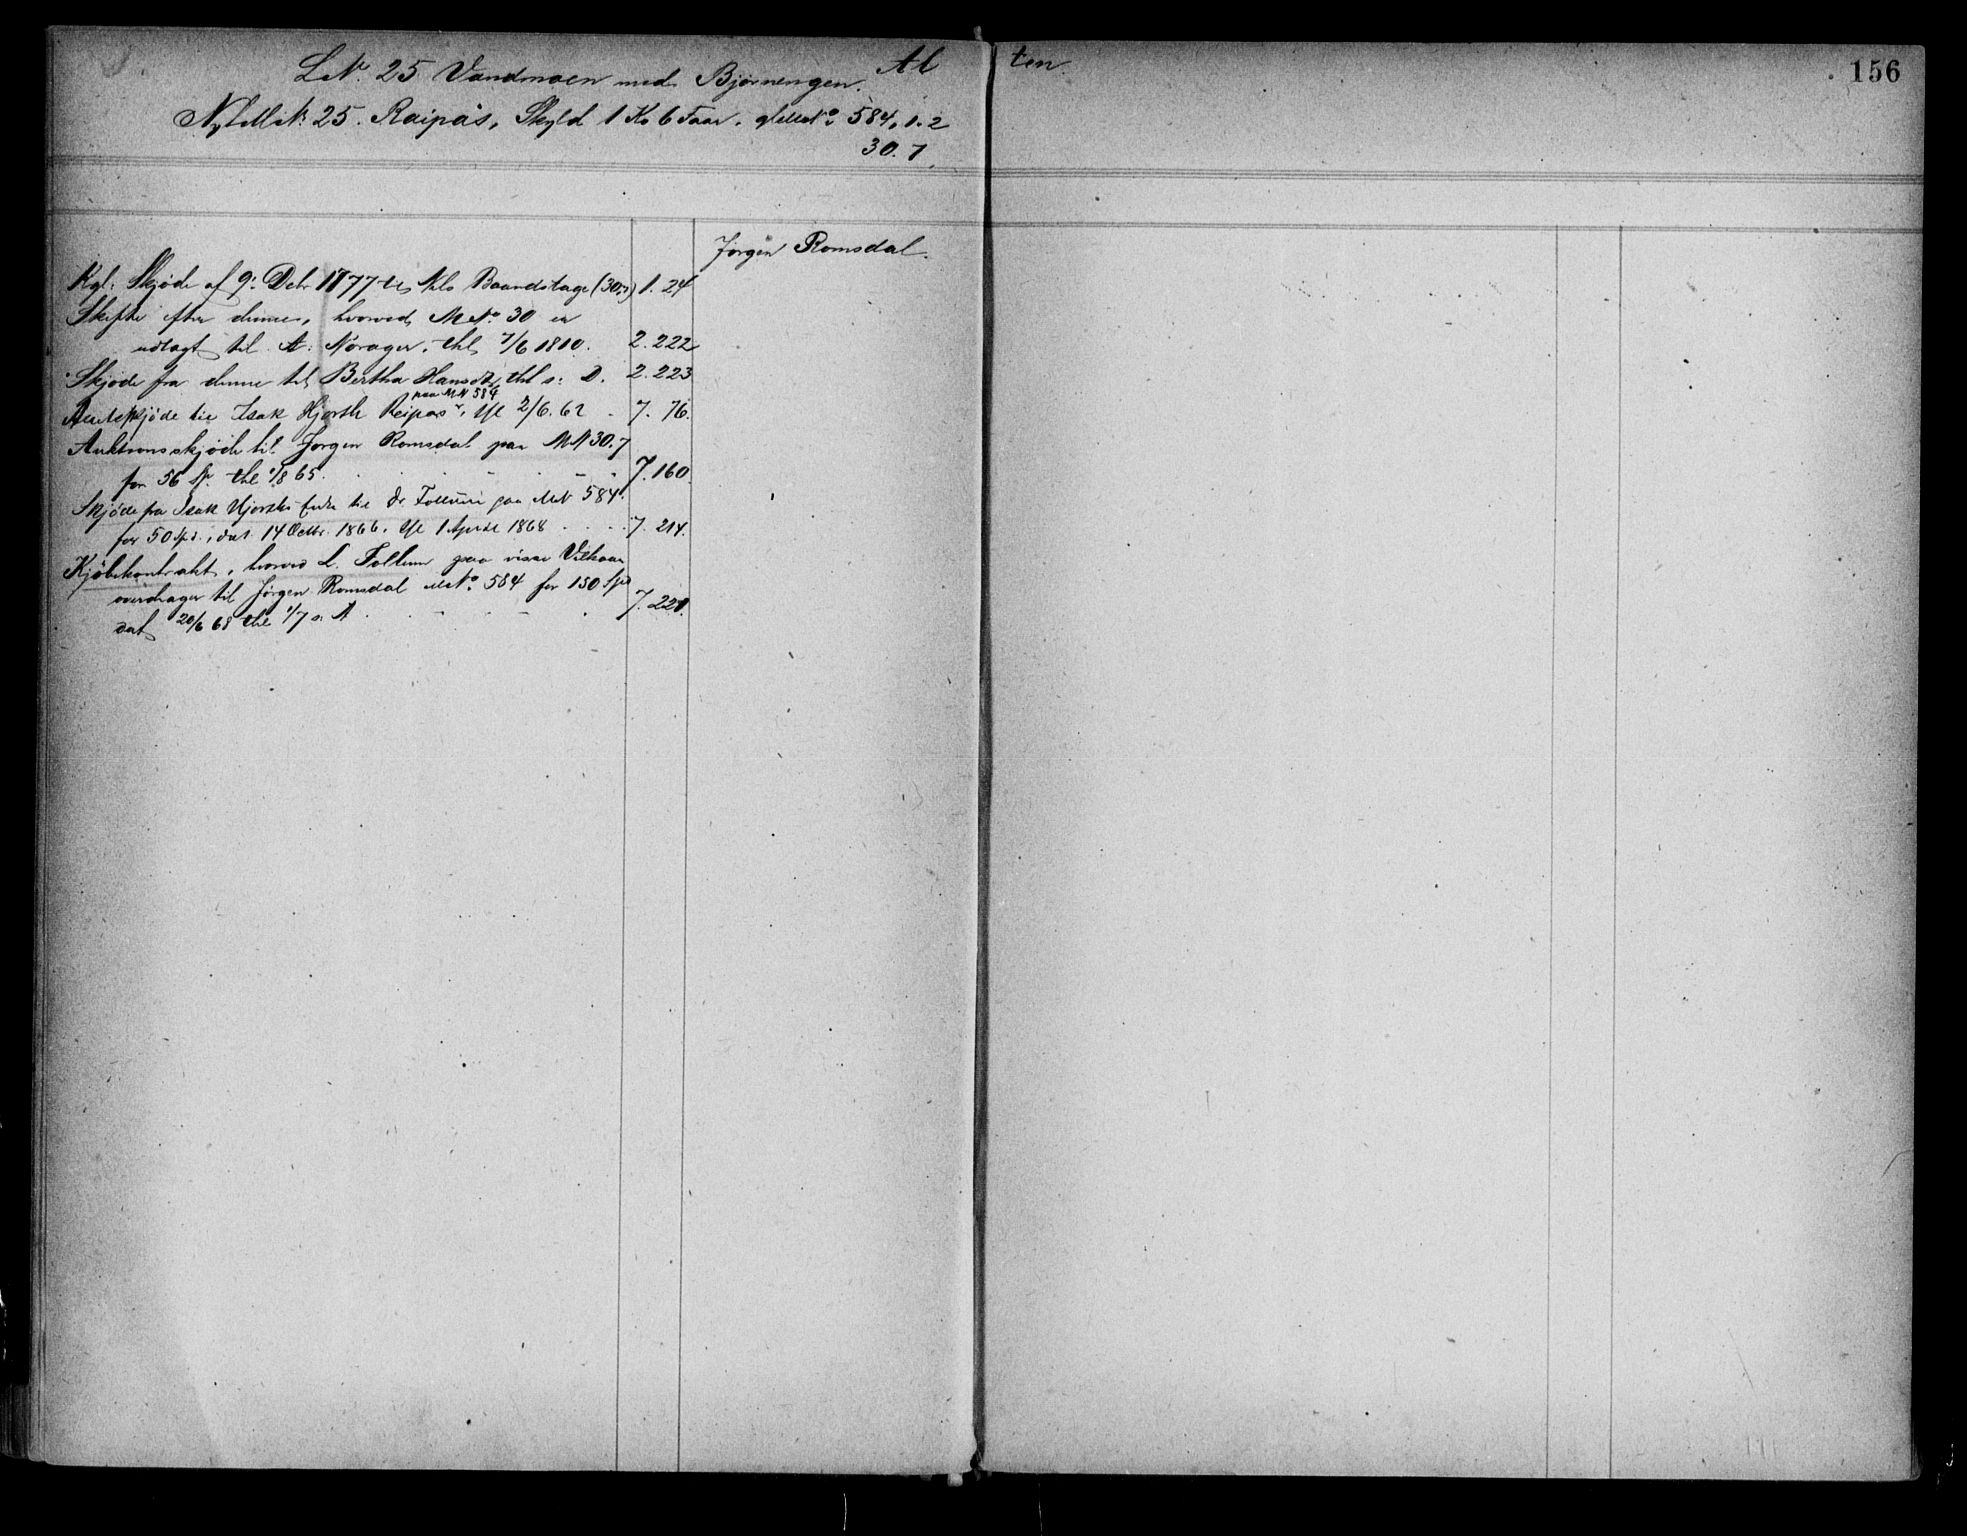 Al ten. 156
L.N. 25 Vandmoen med Bjørnengen.
Nyt M.N. 25. Raipås, Skyld 1 Ko 6 Faar. gl M.No 584, 1.2
30.7.
Jørgen Romsdal.
Kgl. Skjøde af 9. Debr 1777 til Nils Baandstage (30.7) 1.24
Skifte efter denne, hvorved M.No. 30 er
udlagt til A. Nørager. thl 7/6 1810. 2.222
Skjøde fra denne til Bertha Hansdtr thl s. D. 2.223
paa MN 584
Amtskjøde til Isak Hjorth Reipas, thl 2/6.62 7. 76.
Auktionsskjøde til Jørgen Romsdal paa MN 30.7
for 56 Sp. thl 1/8 65. 7.160.
Skjøde fra Isak Hjorths Enke til Dr Follum paa MN 584.
for 50 Spd., dat. 14 Octbr. 1866. thl 1 April 1868 7. 214.
Kjøbekontrakt, hvorved L. Follum paa visse Vilkaar
overdrager til Jørgen Romsdal M.No. 584 for 150 Spd
dat 20/6 68 thl 1/7 s. A. 7.221.